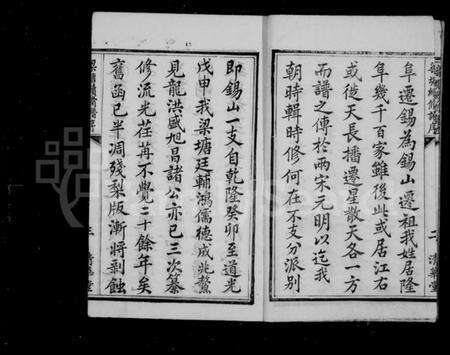 阜遷錫為錫山遷祖我姓居隆
阜幾千百家雖後此或居江右
或從天長播遷星散天各一方
而譜之傳於兩宋元明以迄我
朝時輯時修何在不支分派別
即錫山一支自乾隆癸卯至道光
戊申我梁塘廷輔鴻儒德成兆鰲
見龍洪盛旭昌諸公亦已三次纂
修流光荏苒不覺二十餘年矣
舊函已半凋殘梨版漸將剝蝕